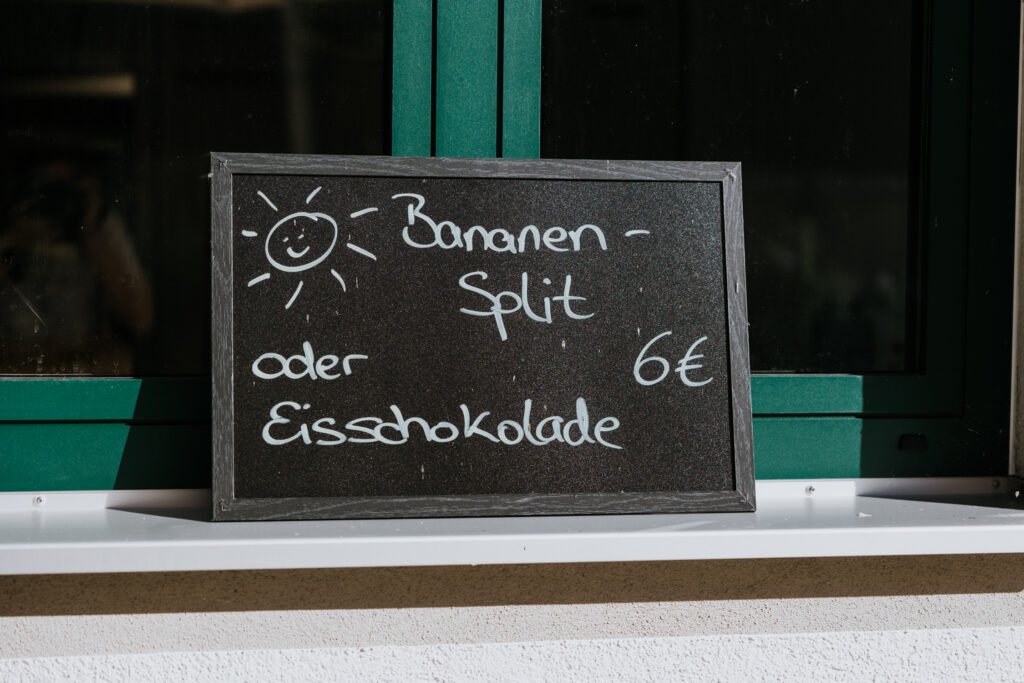 Bananen -
Split
oder 6€
Eisschokolade